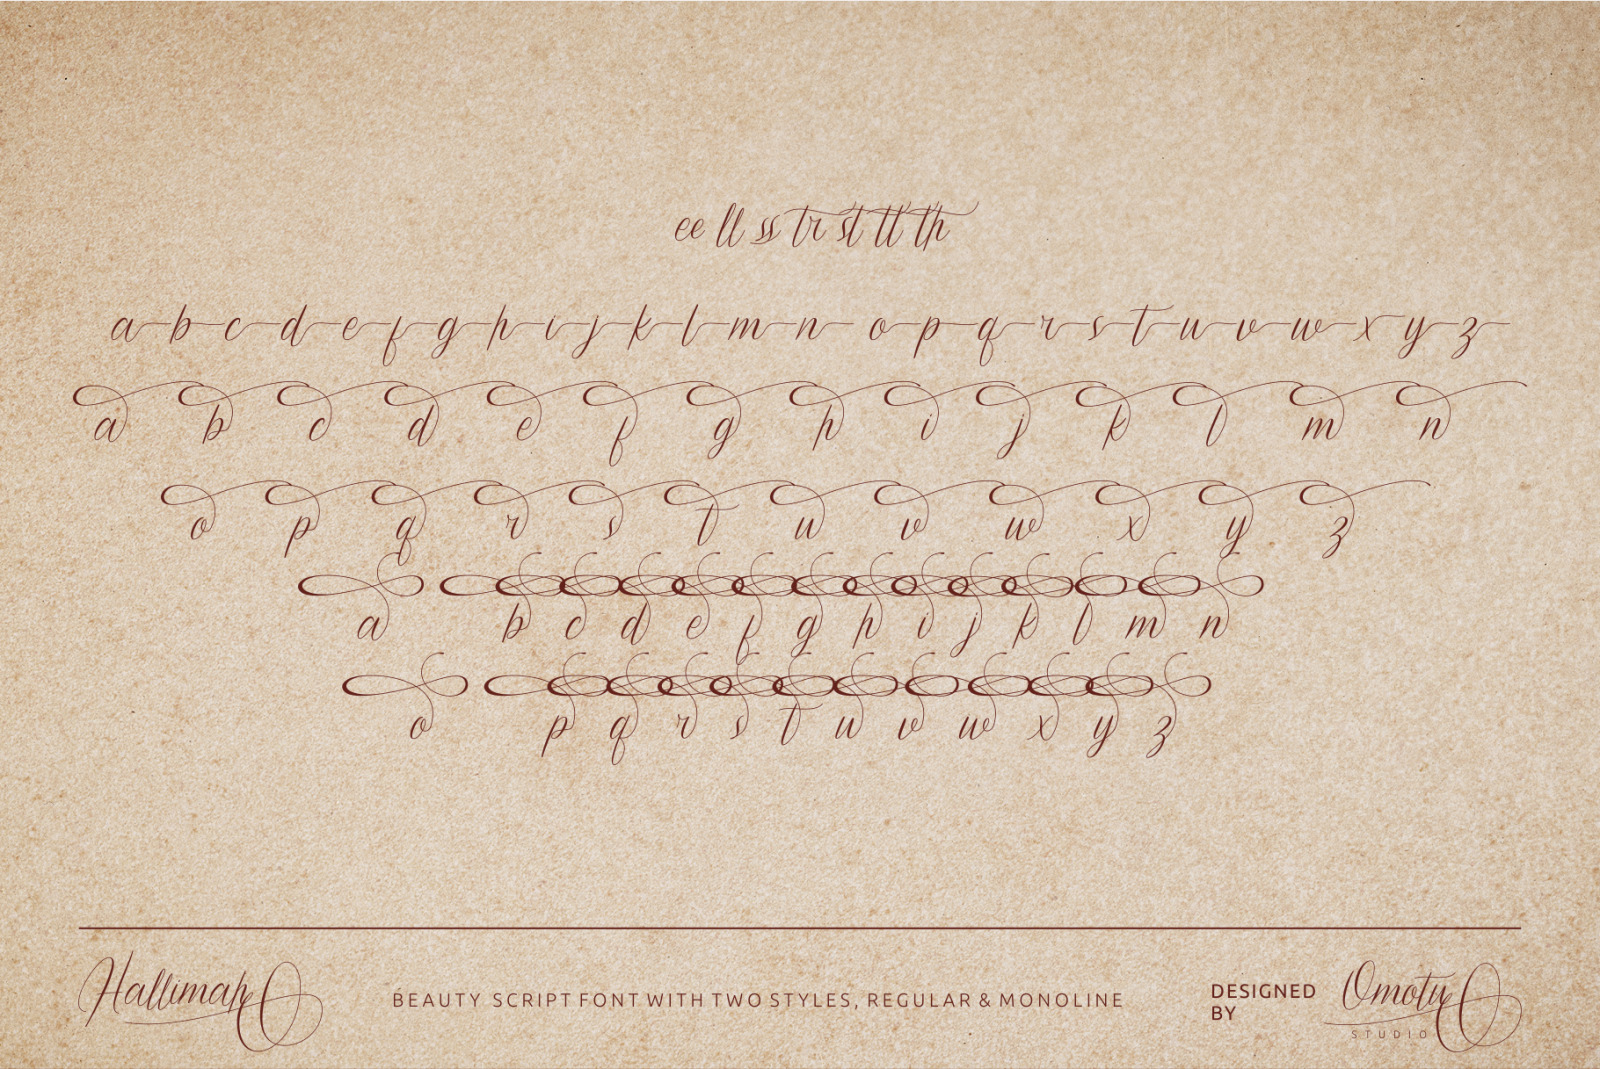 ee ll ss tr st tt th
a b c d e f g h i j k l m n o p q r s t u v w x y z
a b c d e f g h i j k l m n
o p q r s t u v w x y z
a b c d e f g h i j k l m n
o p q r s t u v w x y z
Hallimah
BEAUTY SCRIPT FONT WITH TWO STYLES, REGULAR & MONOLINE
DESIGNED
BY
Omotu
STUDIO